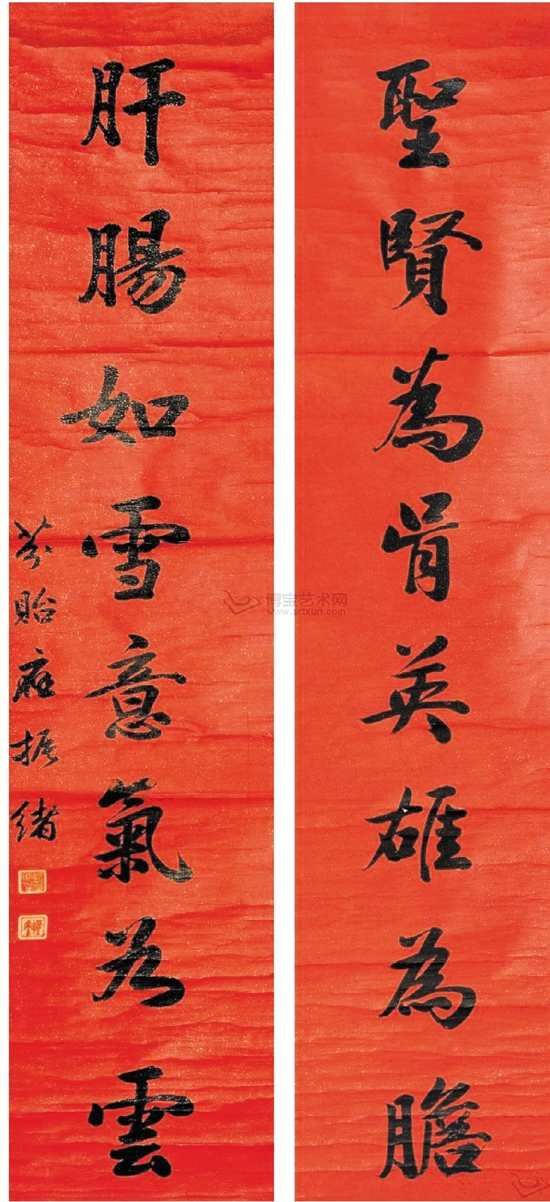 聖賢為骨英雄為膽
肝腸如雪意氣為雲
莽貽應振緒
博宝艺术网
www.artxun.com